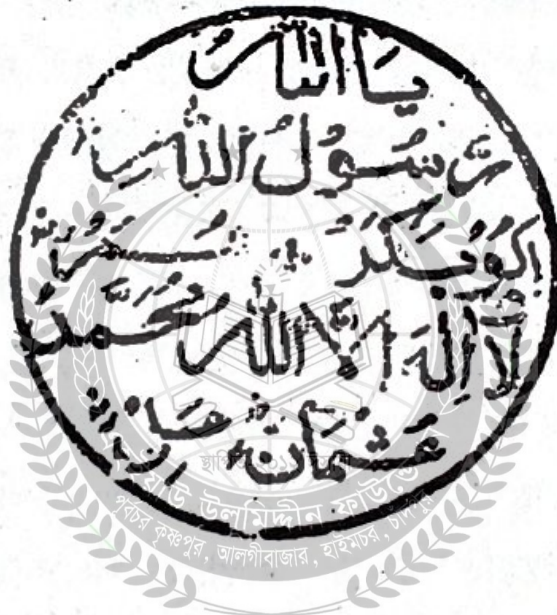 يَا اللهُ
رَّسُولُ اللهِ
اَبُوبَكَرْ عُمَرُ
لَا اِلٰهَ اِلَّا اللهُ مُحَمَّدُ
عُثْمَانُ
স্থাপিত
ফাউন্ডে
পূর্বচর কৃষ্ণপুর, আলগীবাজার, হাইমচর, চাঁদপুর